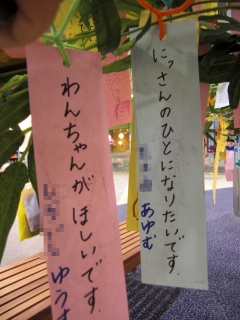 にっさんのひとになりたいです
あゆむ
わんちゃんがほしいです
ゆうす